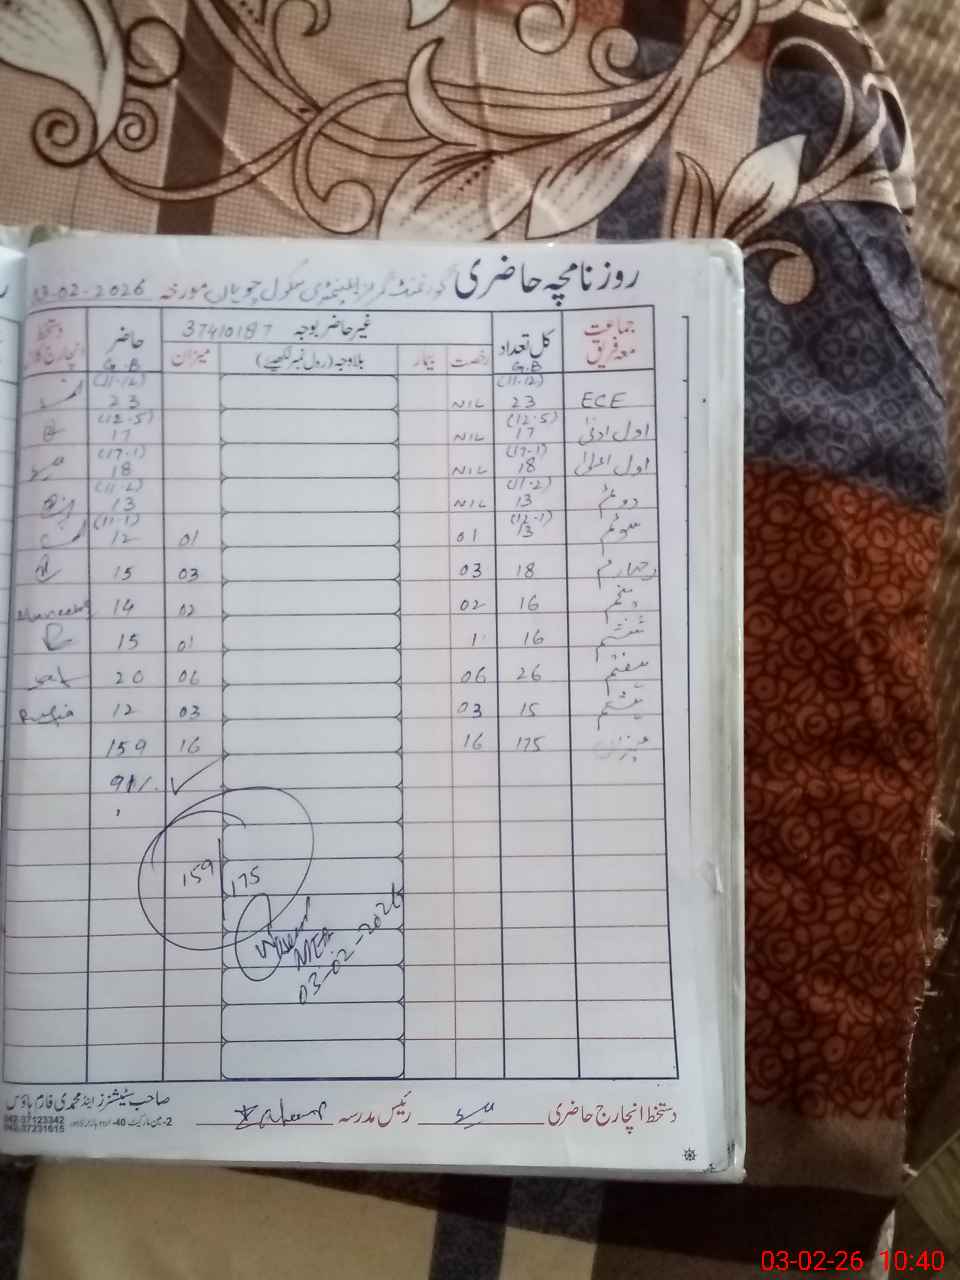 روزنامچہ حاضری گورنمنٹ گرلز ایلیمنٹری سکول چوپالہ مورخہ 03-02-2026
جماعت معہ فریق کل تعداد G.B غیر حاضر بوجہ 37410187 حاضر G.B دستخط انچارج کلاس
رخصت بیمار بلاوجہ (رول نمبر لکھیے) میزان
ECE (11-12) 23 NIL (11-12) 23
اول ادنیٰ (12-5) 17 NIL (12-5) 17
اول اعلیٰ (17-1) 18 NIL (17-1) 18
دوئم (11-2) 13 NIL (11-2) 13
سوئم (12-1) 13 01 01 (11-1) 12
چہارم 18 03 03 15
پنجم 16 02 02 14
ششم 16 1 01 15
ہفتم 26 06 06 20
ہشتم 15 03 03 12
میزان 175 16 16 159
91%
159/175
MEA
03-02-2026
دستخط انچارج حاضری رئیس مدرسہ
صاحب سٹیشنرز اینڈ محمدی فارم ہاؤس
042-37123342
042-37231615
03-02-26 10:40